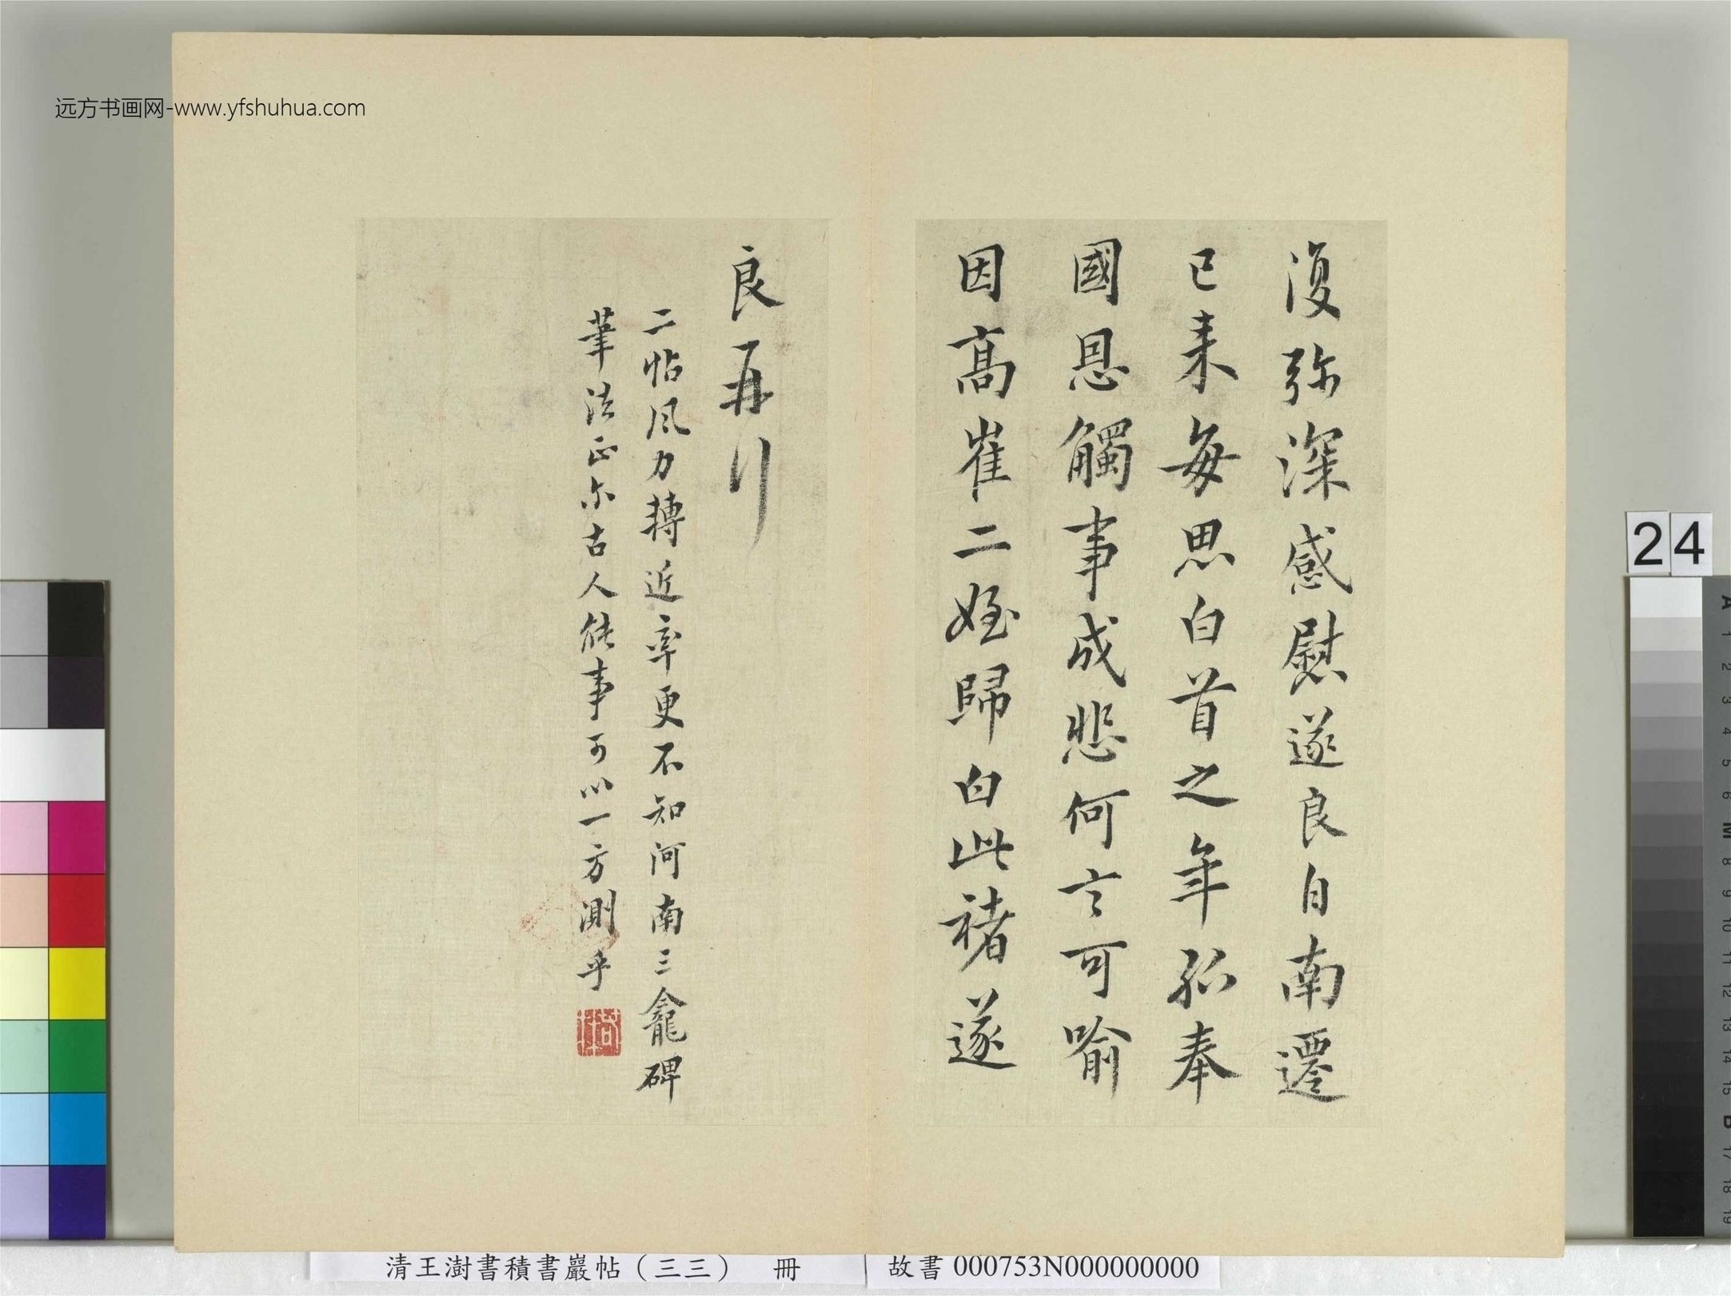 远方书画网-www.yfshuhua.com
復弥深感慰遂良自南遷
已来每思白首之年孤奉
國恩觸事成悲何言可喻
因高崔二姪歸白此褚遂
良再行
二帖風力轉近率更不知河南三龕碑
筆法正尔古人能事可以一方測乎
24
清王澍書積書巖帖（三三） 冊
故書 000753N000000000